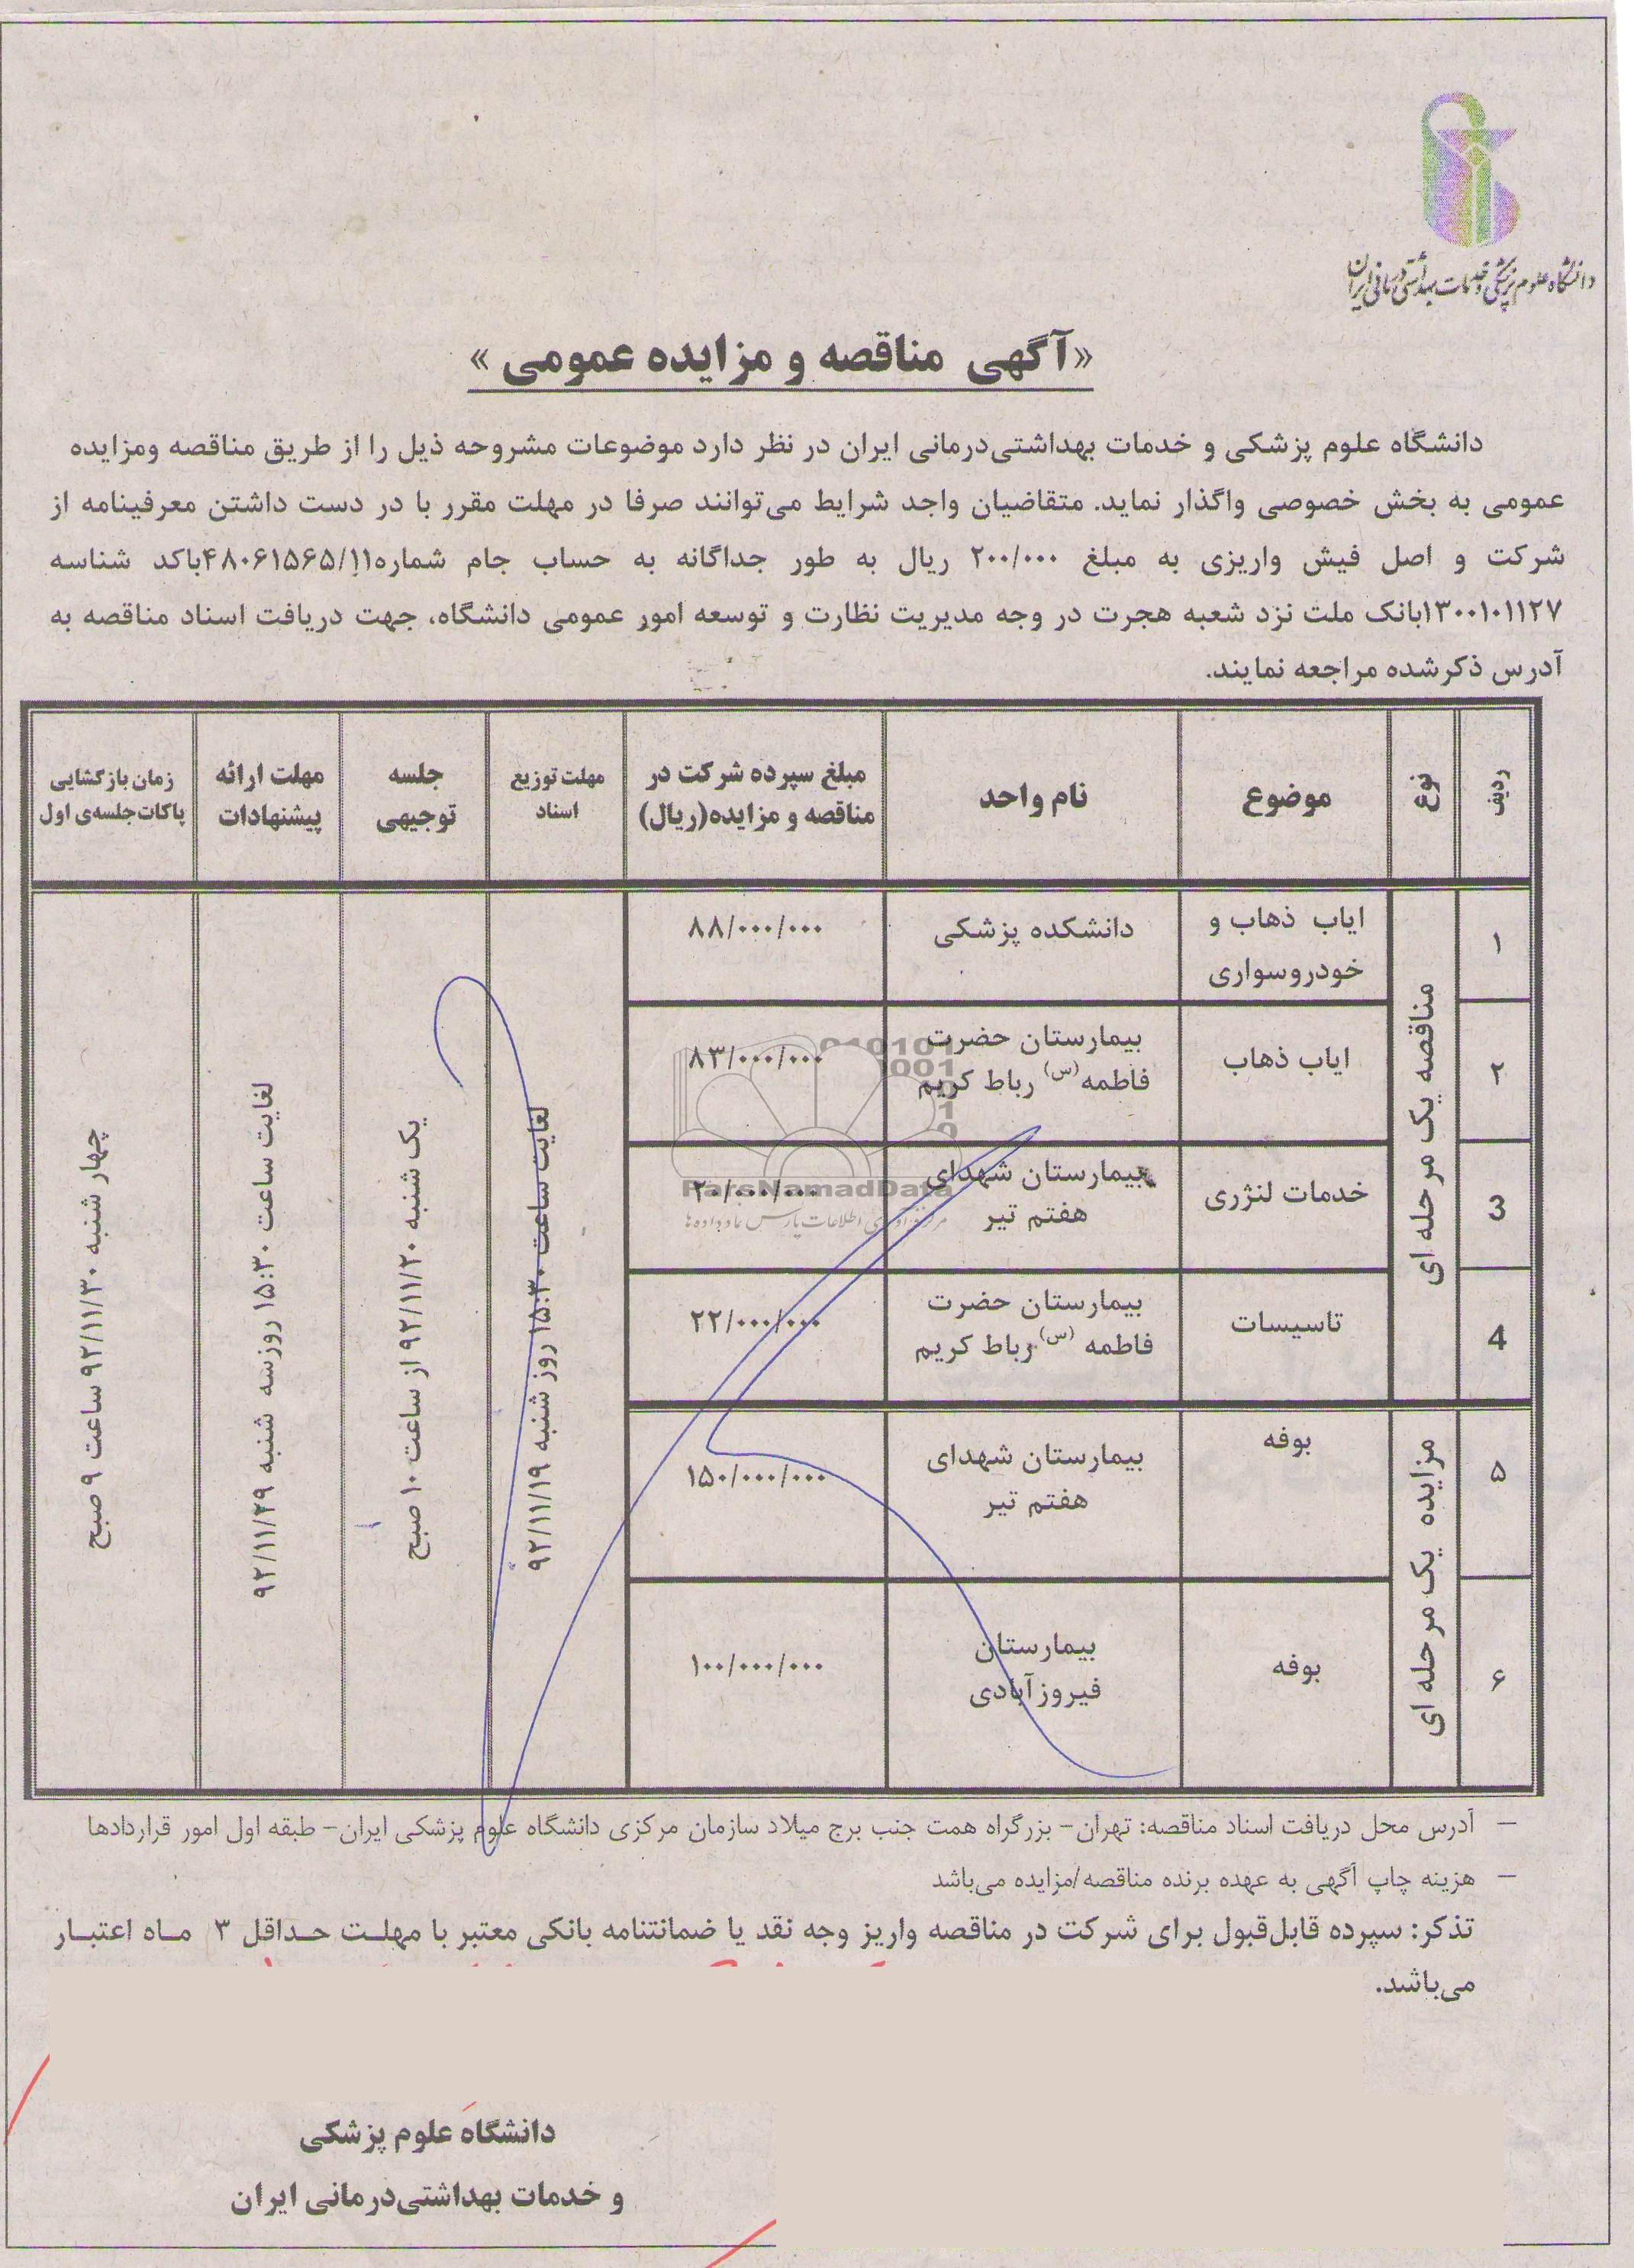 دانشگاه علوم پزشکی و خدمات بهداشتی درمانی ایران
«آگهی مناقصه و مزایده عمومی »
دانشگاه علوم پزشکی و خدمات بهداشتی‌درمانی ایران در نظر دارد موضوعات مشروحه ذیل را از طریق مناقصه ومزایده
عمومی به بخش خصوصی واگذار نماید. متقاضیان واجد شرایط می‌توانند صرفا در مهلت مقرر با در دست داشتن معرفینامه از
شرکت و اصل فیش واریزی به مبلغ ۲۰۰/۰۰۰ ریال به طور جداگانه به حساب جام شماره۴۸۰۶۱۵۶۵/۱۱باکد شناسه
۱۳۰۰۱۰۱۱۲۷بانک ملت نزد شعبه هجرت در وجه مدیریت نظارت و توسعه امور عمومی دانشگاه، جهت دریافت اسناد مناقصه به
آدرس ذکرشده مراجعه نمایند.
ردیف
نوع
موضوع
نام واحد
مبلغ سپرده شرکت در
مناقصه و مزایده(ریال)
مهلت توزیع
اسناد
جلسه
توجیهی
مهلت ارائه
پیشنهادات
زمان بازگشایی
پاکات جلسه‌ی اول
۱
مناقصه یک مرحله ای
ایاب ذهاب و
خودروسواری
دانشکده پزشکی
۸۸/۰۰۰/۰۰۰
لغایت ساعت ۱۵:۳۰ روز شنبه ۹۲/۱۱/۱۹
یک شنبه ۹۲/۱۱/۲۰ از ساعت ۱۰ صبح
لغایت ساعت ۱۵:۳۰ روزسه شنبه ۹۲/۱۱/۲۹
چهار شنبه ۹۲/۱۱/۳۰ ساعت ۹ صبح
۲
ایاب ذهاب
بیمارستان حضرت
فاطمه(س) رباط کریم
۸۳/۰۰۰/۰۰۰
3
خدمات لنژری
بیمارستان شهدای
هفتم تیر
۲۰/۰۰۰/۰۰۰
4
تاسیسات
بیمارستان حضرت
فاطمه (س) رباط کریم
۲۲/۰۰۰/۰۰۰
۵
مزایده یک مرحله ای
بوفه
بیمارستان شهدای
هفتم تیر
۱۵۰/۰۰۰/۰۰۰
۶
بوفه
بیمارستان
فیروزآبادی
۱۰۰/۰۰۰/۰۰۰
ParsNamadData
– آدرس محل دریافت اسناد مناقصه: تهران– بزرگراه همت جنب برج میلاد سازمان مرکزی دانشگاه علوم پزشکی ایران– طبقه اول امور قراردادها
– هزینه چاپ آگهی به عهده برنده مناقصه/مزایده می‌باشد
تذکر: سپرده قابل‌قبول برای شرکت در مناقصه واریز وجه نقد یا ضمانتنامه بانکی معتبر با مهلت حداقل ۳ ماه اعتبار
می‌باشد.
دانشگاه علوم پزشکی
و خدمات بهداشتی‌درمانی ایران